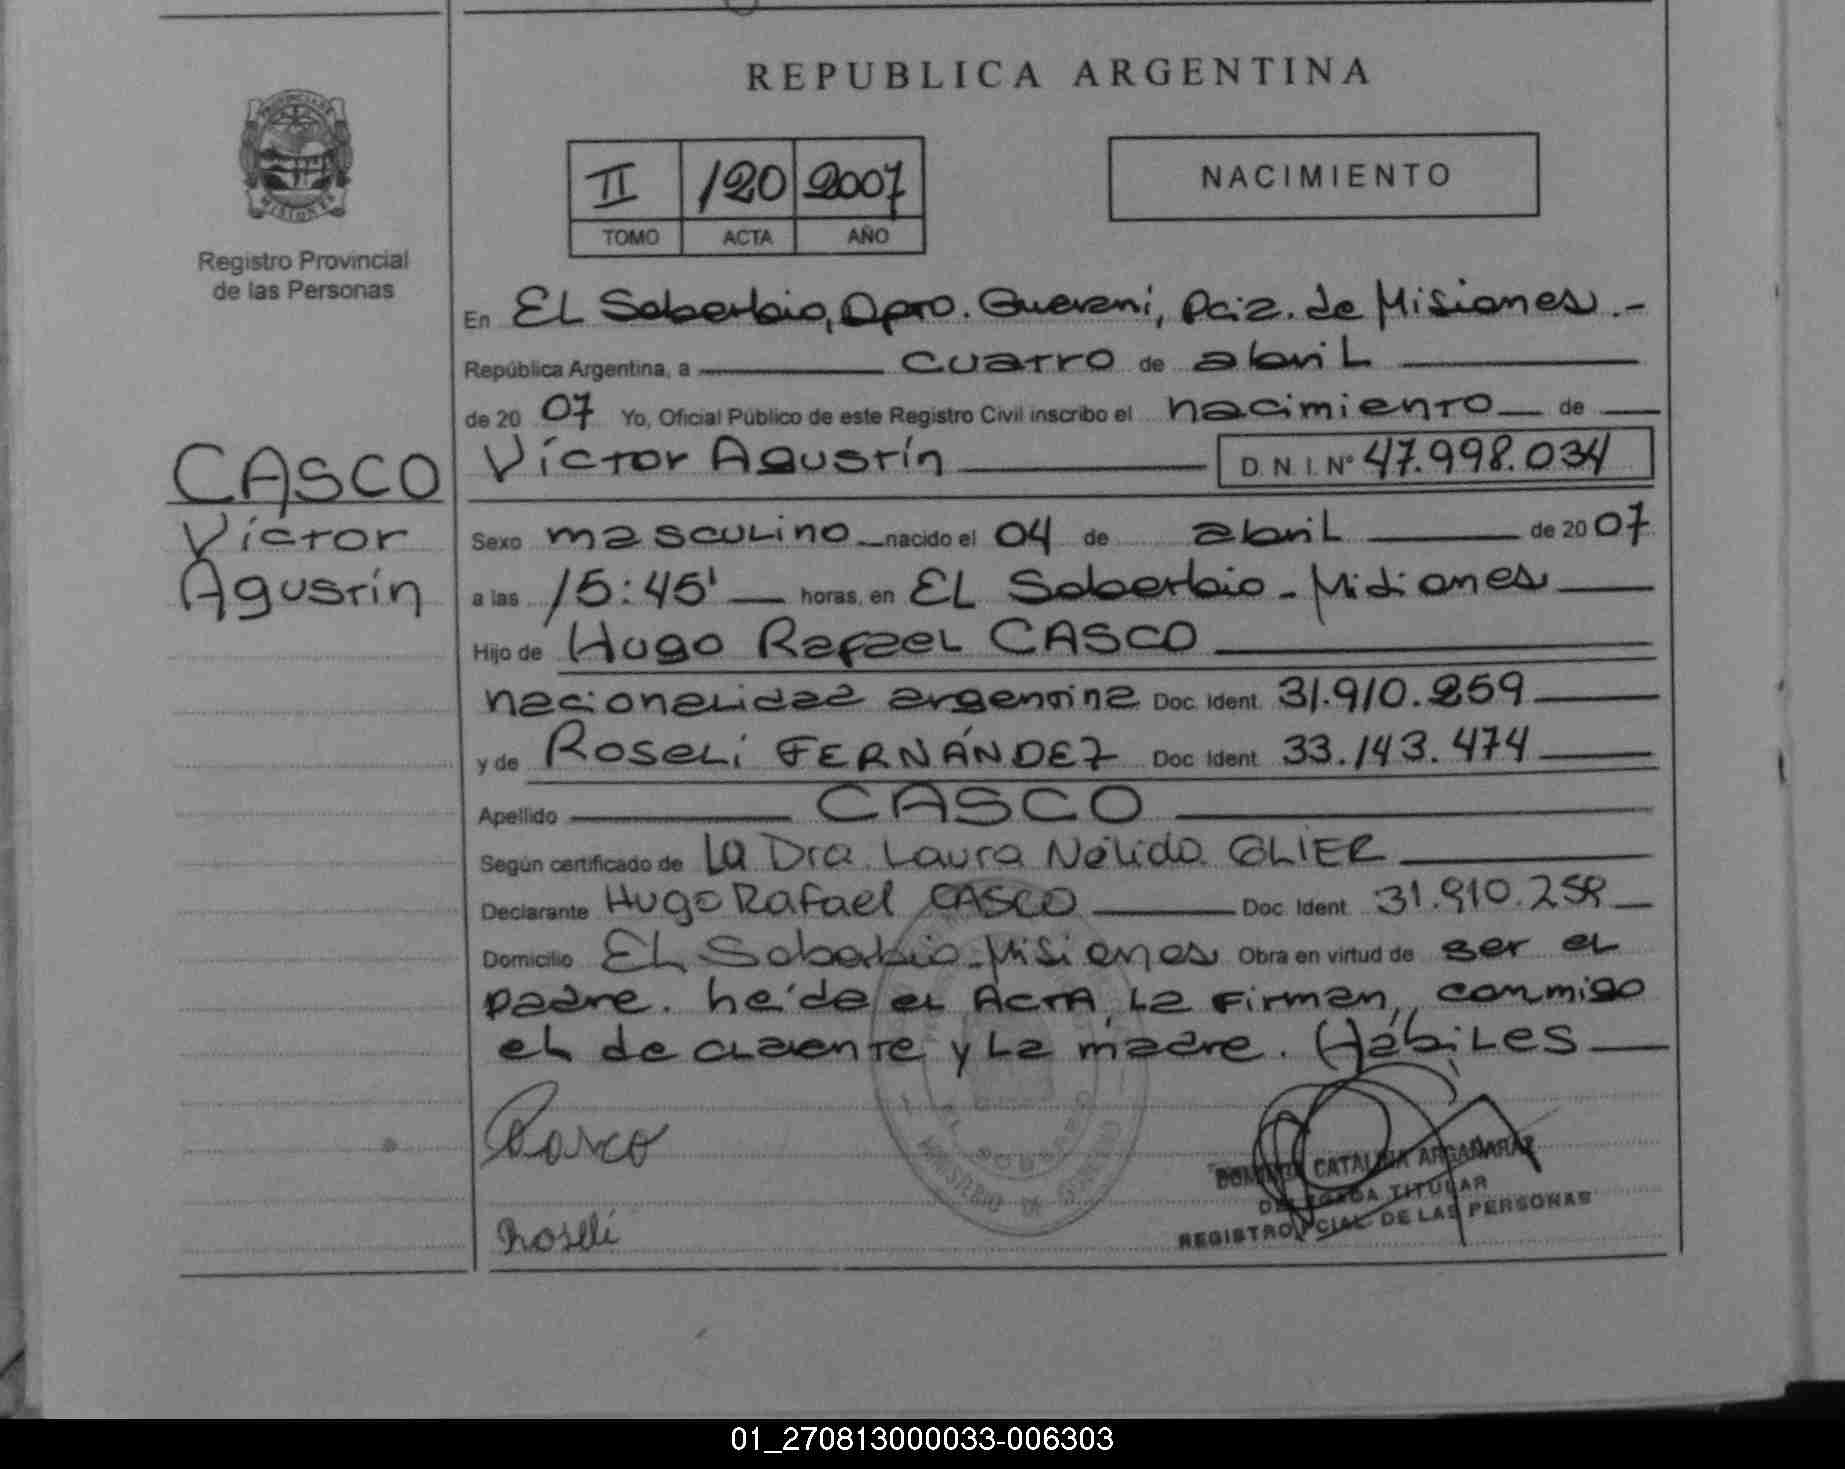 REPUBLICA ARGENTINA
PROVINCIA DE
MISIONES
Registro Provincial
de las Personas
II /120 2007
TOMO ACTA AÑO
NACIMIENTO
En EL Soberbio, Dpto. Guarani, Pcia. de Misiones.-
República Argentina, a cuatro de abril
de 2007 Yo, Oficial Público de este Registro Civil inscribo el nacimiento de
Víctor Agustín D. N. I. Nº 47.998.034
CASCO
Víctor
Agustín
Sexo masculino nacido el 04 de abril de 2007
a las 15:45' horas, en EL Soberbio - Misiones
Hijo de Hugo Rafael CASCO
nacionalidad argentina Doc. Ident. 31.910.259
y de Roseli FERNÁNDEZ Doc. Ident. 33.143.474
Apellido CASCO
Según certificado de La Dra. Laura Nélida GLIER
Declarante Hugo Rafael CASCO Doc. Ident. 31.910.259
Domicilio EL Soberbio - Misiones Obra en virtud de ser el
padre. heída el ACTA, La Firman, conmigo
el declarante y La madre. Hábiles
Casco
Roseli
EL SOBERBIO
MINISTERIO DE GOBIERNO
CATALINA ARGAÑARAZ
DELEGADA TITULAR
REGISTRO PCIAL. DE LAS PERSONAS
01_270813000033-006303